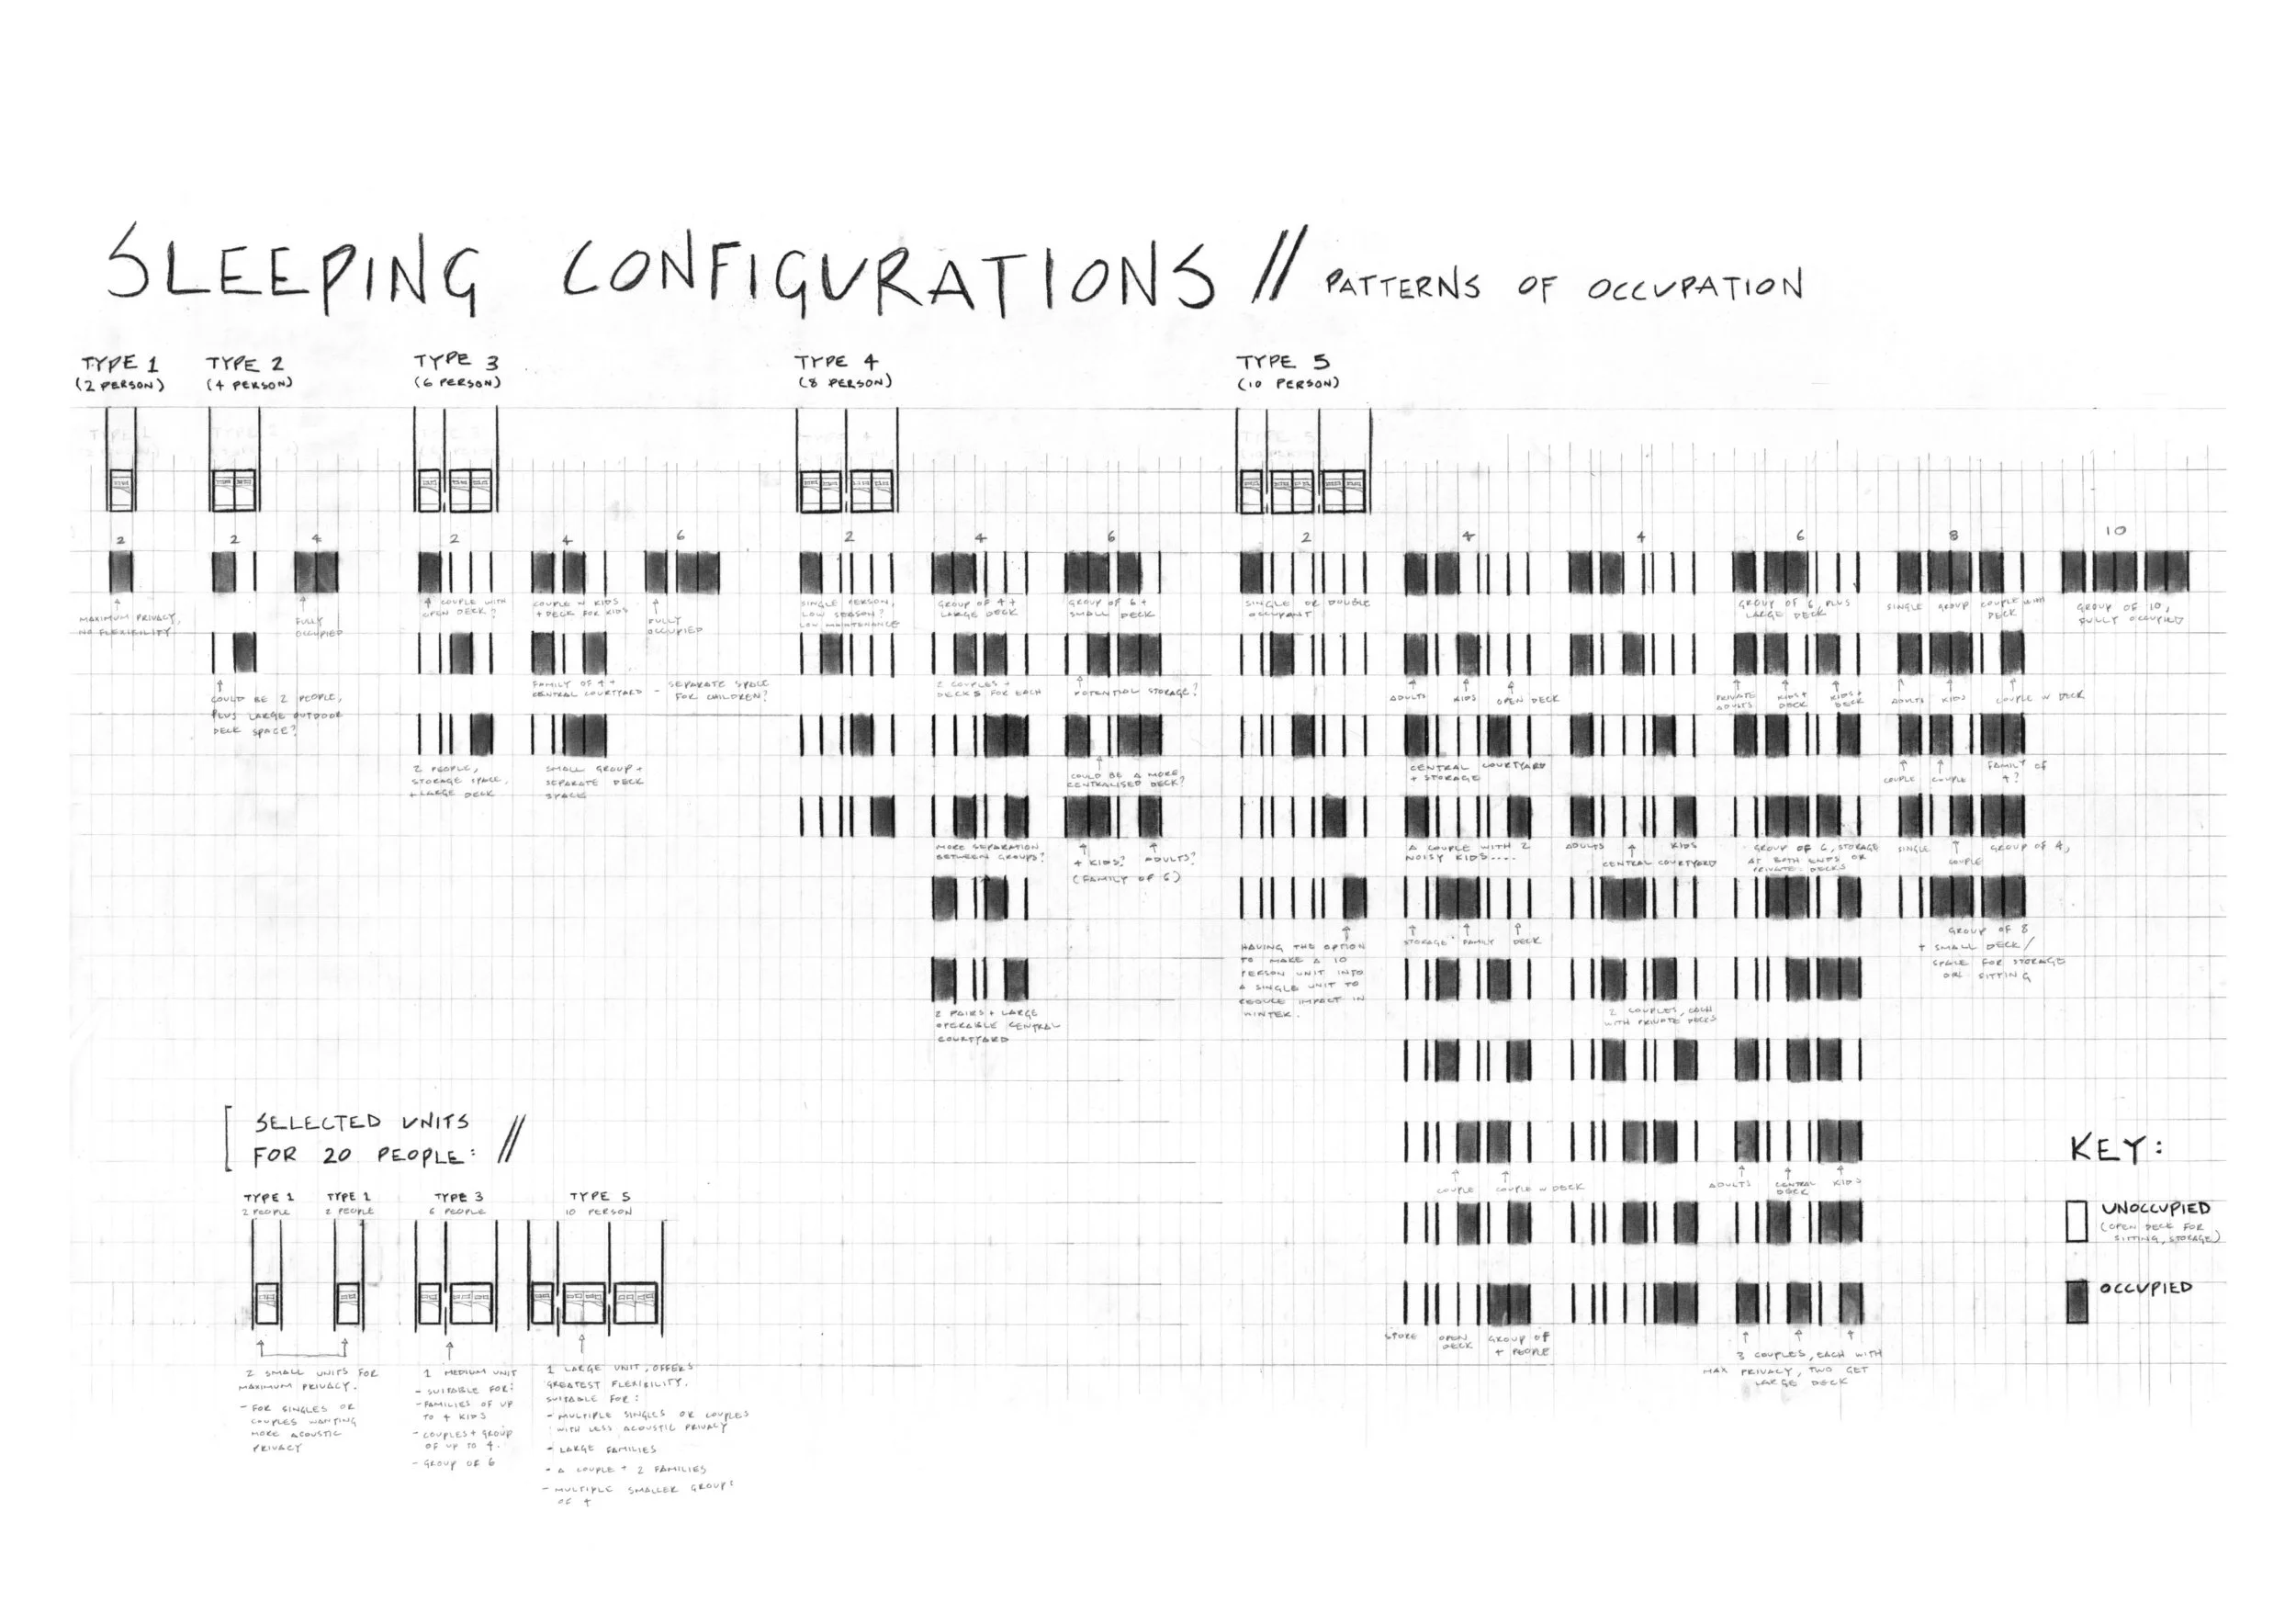 SLEEPING CONFIGURATIONS // PATTERNS OF OCCUPATION
TYPE 1
(2 PERSON)
TYPE 2
(4 PERSON)
TYPE 3
(6 PERSON)
TYPE 4
(8 PERSON)
TYPE 5
(10 PERSON)
2
2
4
2
4
6
2
4
6
2
4
4
6
8
10
MAXIMUM PRIVACY,
NO FLEXIBILITY
FULLY
OCCUPIED
COULD BE 2 PEOPLE,
PLUS LARGE OUTDOOR
DECK SPACE?
COUPLE WITH
OPEN DECK?
2 PEOPLE,
STORAGE SPACE,
+ LARGE DECK
COUPLE W KIDS
+ DECK FOR KIDS
FAMILY OF 4 +
CENTRAL COURTYARD - SEPARATE SPACE
FOR CHILDREN?
SMALL GROUP +
SEPARATE DECK
SPACE
FULLY
OCCUPIED
SINGLE PERSON,
LOW SEASON?
LOW MAINTENANCE
GROUP OF 4 +
LARGE DECK
2 COUPLES +
DECKS FOR EACH
MORE SEPARATION
BETWEEN GROUPS?
2 PAIRS + LARGE
OPERABLE CENTRAL
COURTYARD
GROUP OF 6 +
SMALL DECK
POTENTIAL STORAGE?
COULD BE A MORE
CENTRALISED DECK?
4 KIDS? ADULTS?
(FAMILY OF 6)
SINGLE OR DOUBLE
OCCUPANT
HAVING THE OPTION
TO MAKE A 10
PERSON UNIT INTO
A SINGLE UNIT TO
REDUCE IMPACT IN
WINTER.
ADULTS KIDS OPEN DECK
CENTRAL COURTYARD
+ STORAGE
A COUPLE WITH 2
NOISY KIDS....
STORAGE FAMILY DECK
COUPLE COUPLE W DECK
STORE OPEN
DECK
GROUP OF
4 PEOPLE
ADULTS KIDS
CENTRAL COURTYARD
2 COUPLES, EACH
WITH PRIVATE DECKS
GROUP OF 6, PLUS
LARGE DECK
PRIVATE
ADULTS
KIDS +
DECK
KIDS +
DECK
GROUP OF 6, STORAGE
AT BOTH ENDS OR
PRIVATE DECKS
ADULTS CENTRAL
DECK
KIDS
3 COUPLES, EACH WITH
MAX PRIVACY, TWO GET
LARGE DECK
SINGLE GROUP COUPLE WITH
DECK
ADULTS KIDS COUPLE W DECK
COUPLE COUPLE FAMILY OF
4?
SINGLE COUPLE GROUP OF 4,
GROUP OF 8
+ SMALL DECK/
SPACE FOR STORAGE
OR SITTING
GROUP OF 10,
FULLY OCCUPIED
SELECTED UNITS
FOR 20 PEOPLE: //
TYPE 1
2 PEOPLE
TYPE 1
2 PEOPLE
TYPE 3
6 PEOPLE
TYPE 5
10 PERSON
2 SMALL UNITS FOR
MAXIMUM PRIVACY.
- FOR SINGLES OR
COUPLES WANTING
MORE ACOUSTIC
PRIVACY
1 MEDIUM UNIT
- SUITABLE FOR:
- FAMILIES OF UP
TO 4 KIDS
- COUPLES + GROUP
OF UP TO 4.
- GROUP OF 6
1 LARGE UNIT, OFFERS
GREATEST FLEXIBILITY.
SUITABLE FOR:
- MULTIPLE SINGLES OR COUPLES
WITH LESS ACOUSTIC PRIVACY
- LARGE FAMILIES
- A COUPLE + 2 FAMILIES
- MULTIPLE SMALLER GROUPS
OF 4
KEY:
UNOCCUPIED
(OPEN DECK FOR
SITTING, STORAGE)
OCCUPIED